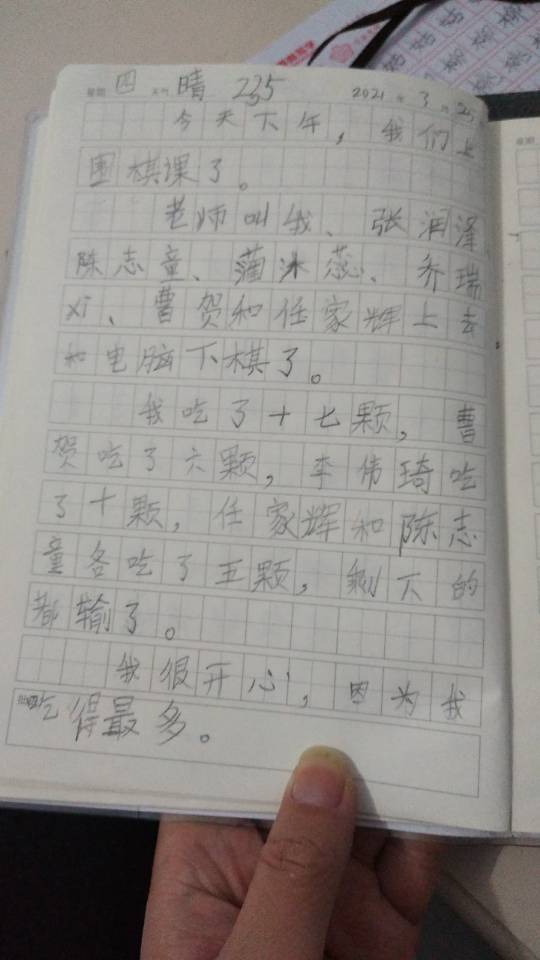 星期 四 天气 晴 235 2021 年 3 月 25
今天下午，我们上
围棋课了。
老师叫我、张润泽、
陈志童、蒲沐蕊、乔瑞
xi、曹贺和任家辉上去
和电脑下棋了。
我吃了十七颗，曹
贺吃了六颗，李伟琦吃
了十颗，任家辉和陈志
童各吃了五颗，剩下的
都输了。
我很开心，因为我
吃得最多。